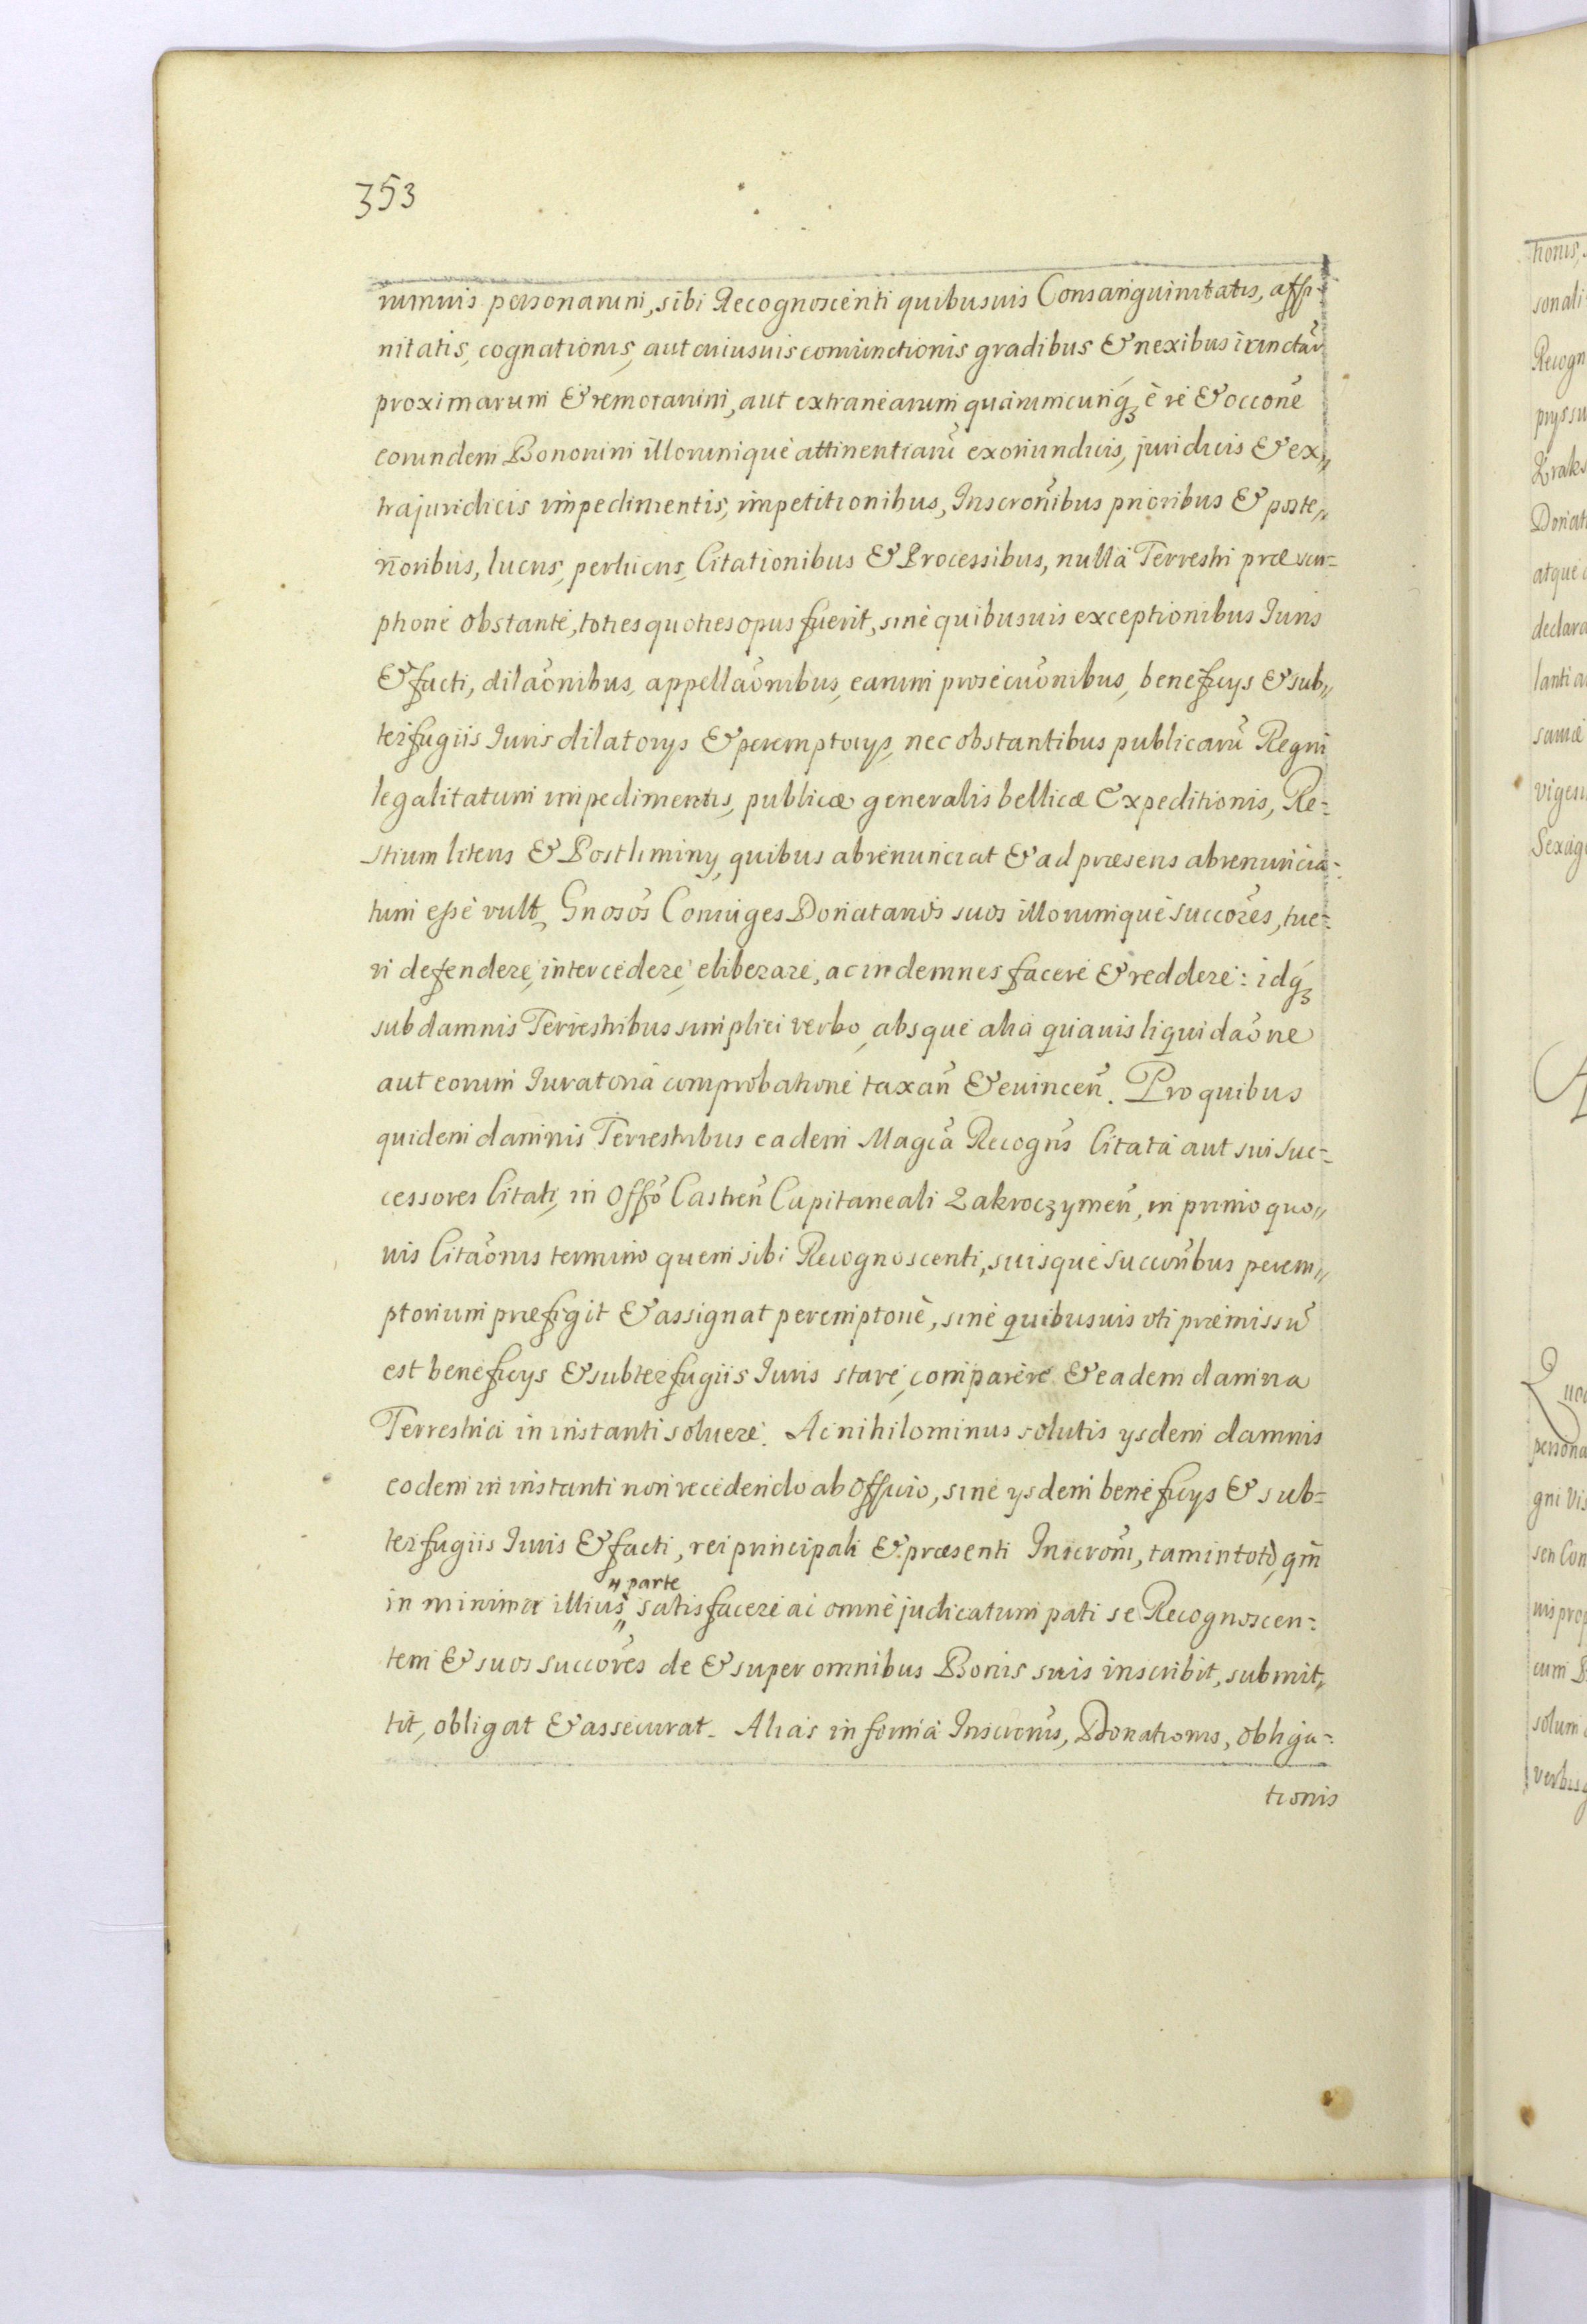 353
rumuis personarum, sibi Recognoscenti quibusuis Consanguinitatis, affi-
nitatis, cognationis, aut cuiusuis coniunctionis gradibus & nexibus iunctarū
proximarum & remotarum, aut extranearum quarumcunq̃ꝫ è re & occōne
eorundem Bonorum illorumque attinentiarū exoriundis, juridicis & ex„
trajuridicis impedimentis, impetitionibus, Inscrōnibus prioribus & poste„
rioribus, lucris, perlucris, Citationibus & Processibus, nullâ Terrestri præscri=
ptione obstante, toties quoties opus fuerit, sine quibusuis exceptionibus Iuris
& facti, dilaōnibus, appellaōnibus, earum prosecuōnibus, beneficys & sub„
terfugiis Iuris dilatorys & peremptorys, nec obstantibus publicarū Regni
legalitatum impedimentis, publicæ generalis bellicæ Expeditionis, Re=
stium literis & Postliminy, quibus abrenunciat & ad præsens abrenuncia=
tum esse vult, Gnosōs Coniuges Donatarios suos illorumque succōres, tue=
ri defendere, intercedere, eliberare, ac indemnes facere & reddere: idq̃ꝫ
sub damnis Terrestribus simplici verbo, absque alia quauis liquidaōne
aut eorum Iuratoriâ comprobatione taxan̄ & euincen̄. Pro quibus
quidem damnis Terrestribus eadem Magcā Recogn̄s Citata aut sui suc=
cessores Citati, in Offō Castren̄ Capitaneali Zakroczymen̄, in primo quo„
uis Citaōnis termino quem sibi Recognoscenti, suisque succōribus perem„
ptorium præfigit & assignat peremptorie, sine quibusuis vti præmissū
est beneficys & subterfugiis Iuris stare, comparere & eadem damna
Terrestria in instanti soluere. Ac nihilominus solutis ysdem damnis
eodem in instanti non recedendo ab Officio, sine ysdem beneficys & sub=
terfugiis Iuris & facti, rei principali & præsenti Inscrōni, tam in toto, qm̄
parte
in minima illius „ satisfacere ac omne judicatum pati se Recognoscen=
tem & suos succōres de & super omnibus Bonis suis inscribit, submit„
tit, obligat & assecurat. Alias in forma Inscrōnis, Donationis, obliga=
tionis